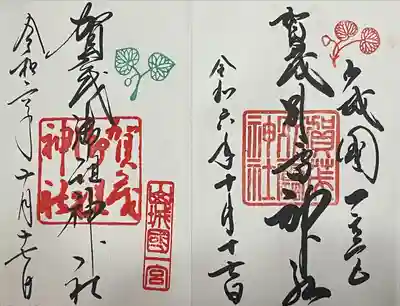 山城國一之宮
賀茂別雷神社
賀茂別雷
神社
令和六年十月十七日
賀茂御祖神社
賀茂
御祖
神社
山城國一宮
令和六年十月十七日